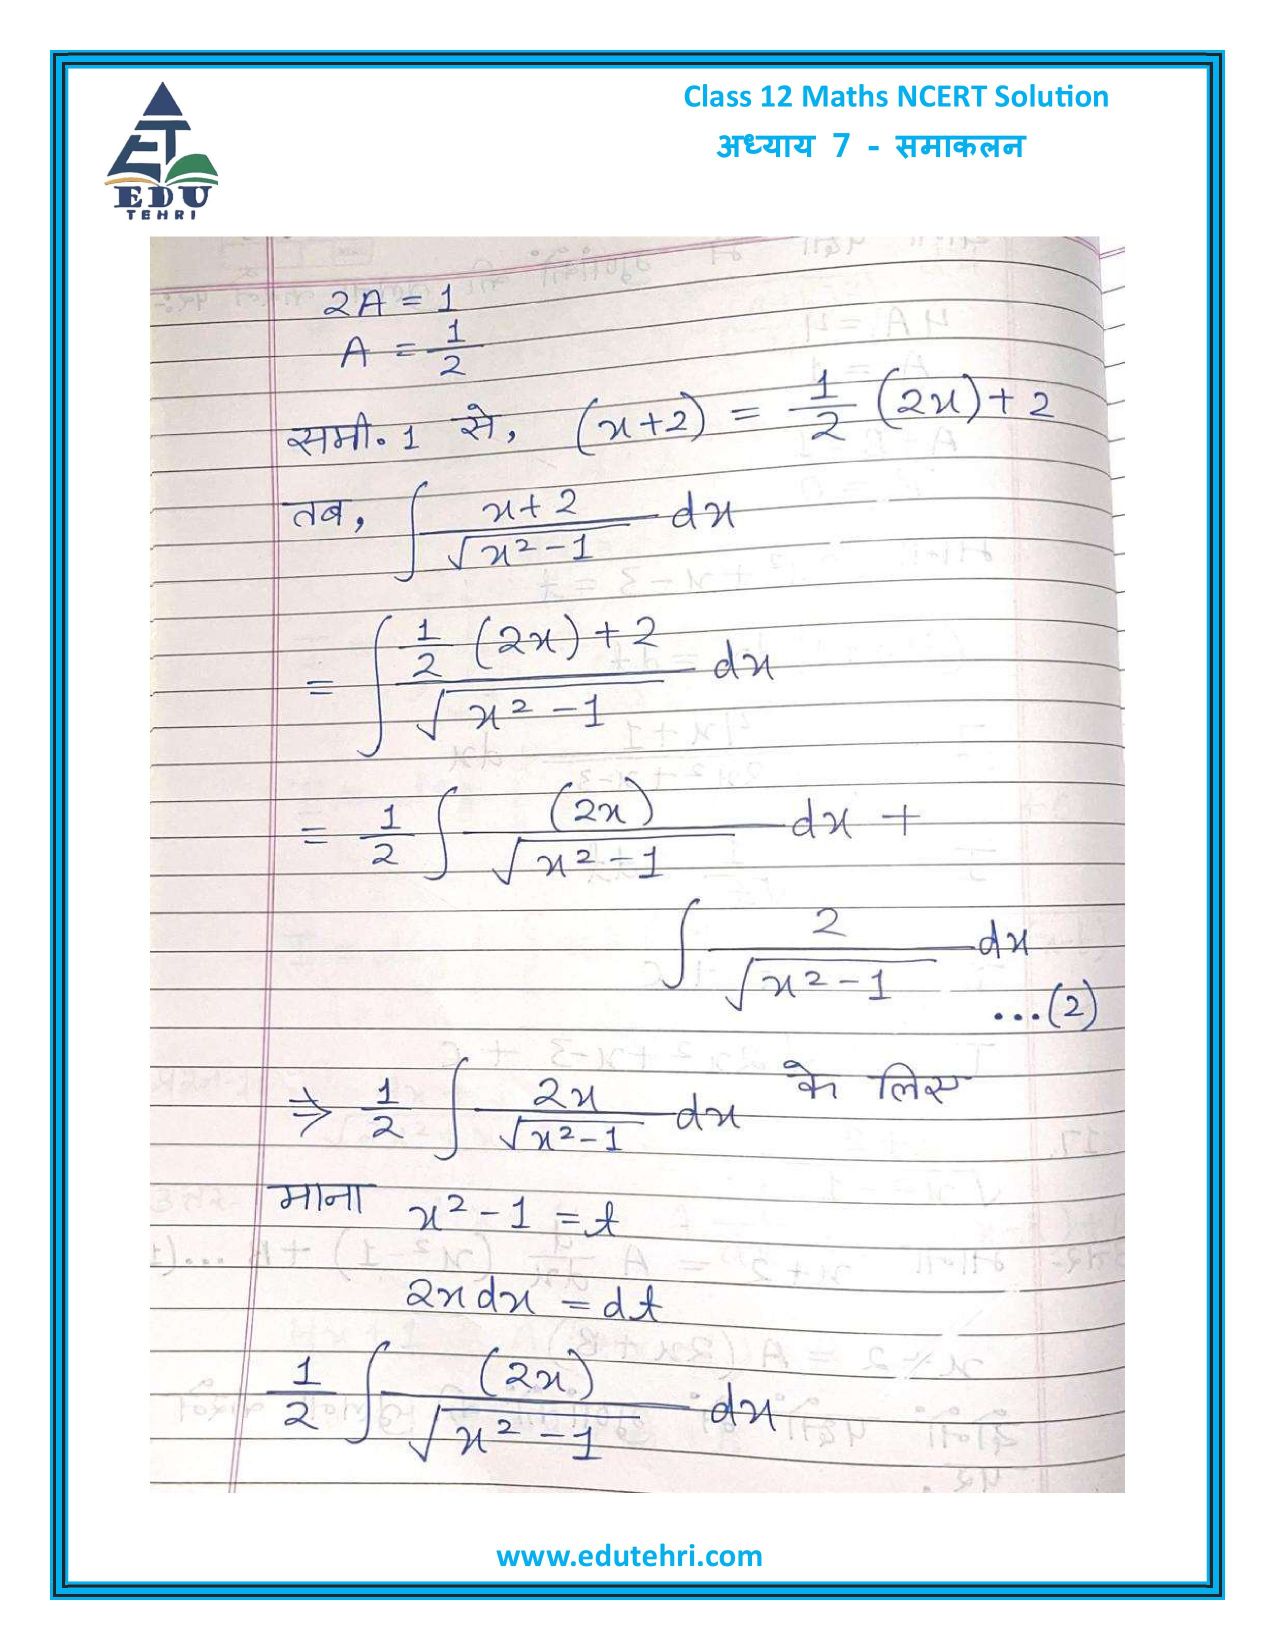 Class 12 Maths NCERT Solution
अध्याय 7 - समाकलन
ET
EDU
TEHRI
2A = 1
A = 1/2
समी. 1 से, (x+2) = 1/2 (2x) + 2
तब, ∫ (x+2)/√(x²-1) dx
= ∫ (1/2 (2x) + 2)/√(x²-1) dx
= 1/2 ∫ (2x)/√(x²-1) dx +
∫ 2/√(x²-1) dx
...(2)
⇒ 1/2 ∫ 2x/√(x²-1) dx के लिए
माना x²-1 = t
2x dx = dt
1/2 ∫ (2x)/√(x²-1) dx
www.edutehri.com